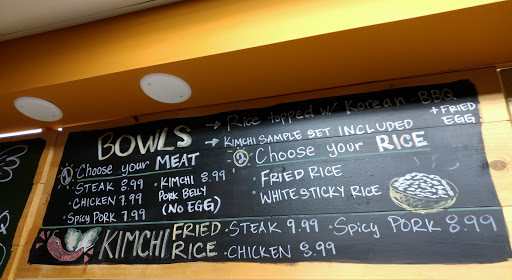 BOWLS
→ Rice topped w/ Korean BBQ
+ FRIED EGG
→ KIMCHI SAMPLE SET INCLUDED
① Choose your MEAT
· STEAK 8.99
· CHICKEN 7.99
· SPICY PORK 7.99
· KIMCHI 8.99
PORK BELLY
(NO EGG)
② Choose your RICE
· FRIED RICE
· WHITE STICKY RICE
KIMCHI FRIED RICE
· STEAK 9.99 · SPICY PORK 8.99
· CHICKEN 8.99